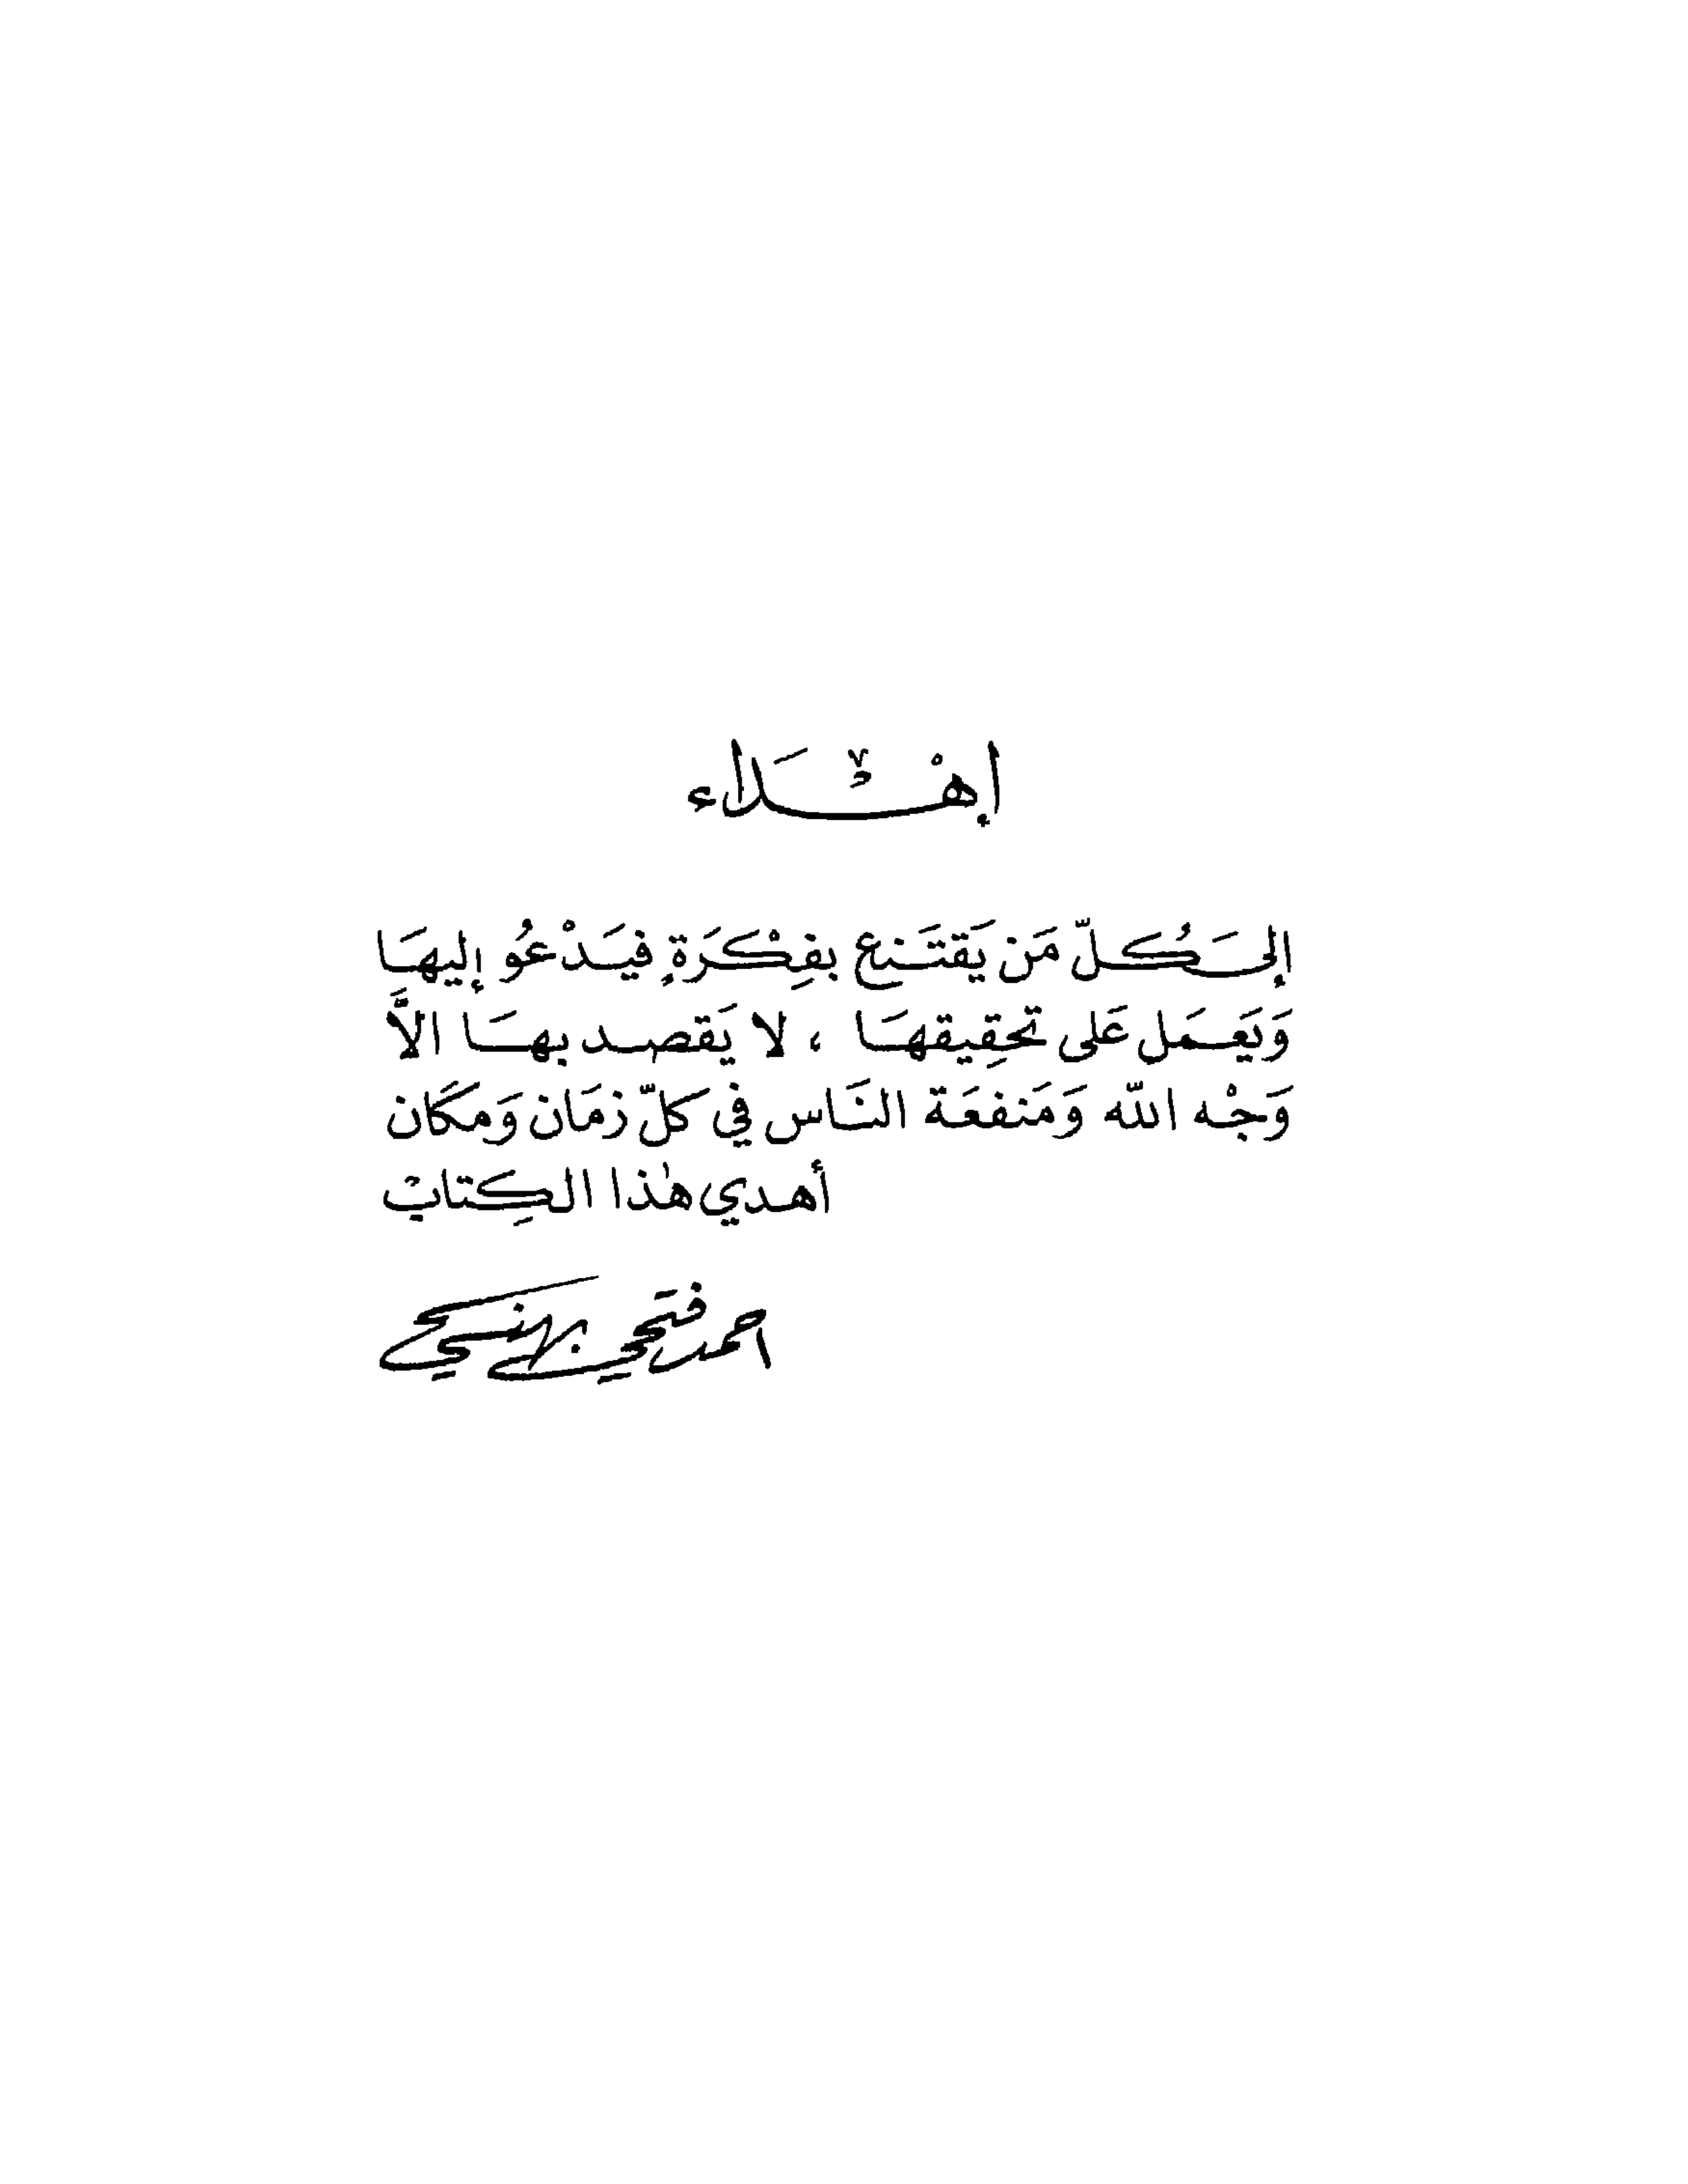 إهْدَاء
إلىَ كُلّ مَن يَقتَنِع بفِكْرَةٍ فيَدْعُو إليهَا
وَيَعمَل عَلى تحقِيقهَا ، لا يَقصد بهَا الاَّ
وَجْه اللّه وَمَنفعَة النَاس في كلّ زمَان وَمكَان
أهدي هٰذا الكِتابْ
احمد فتحي بهنسي